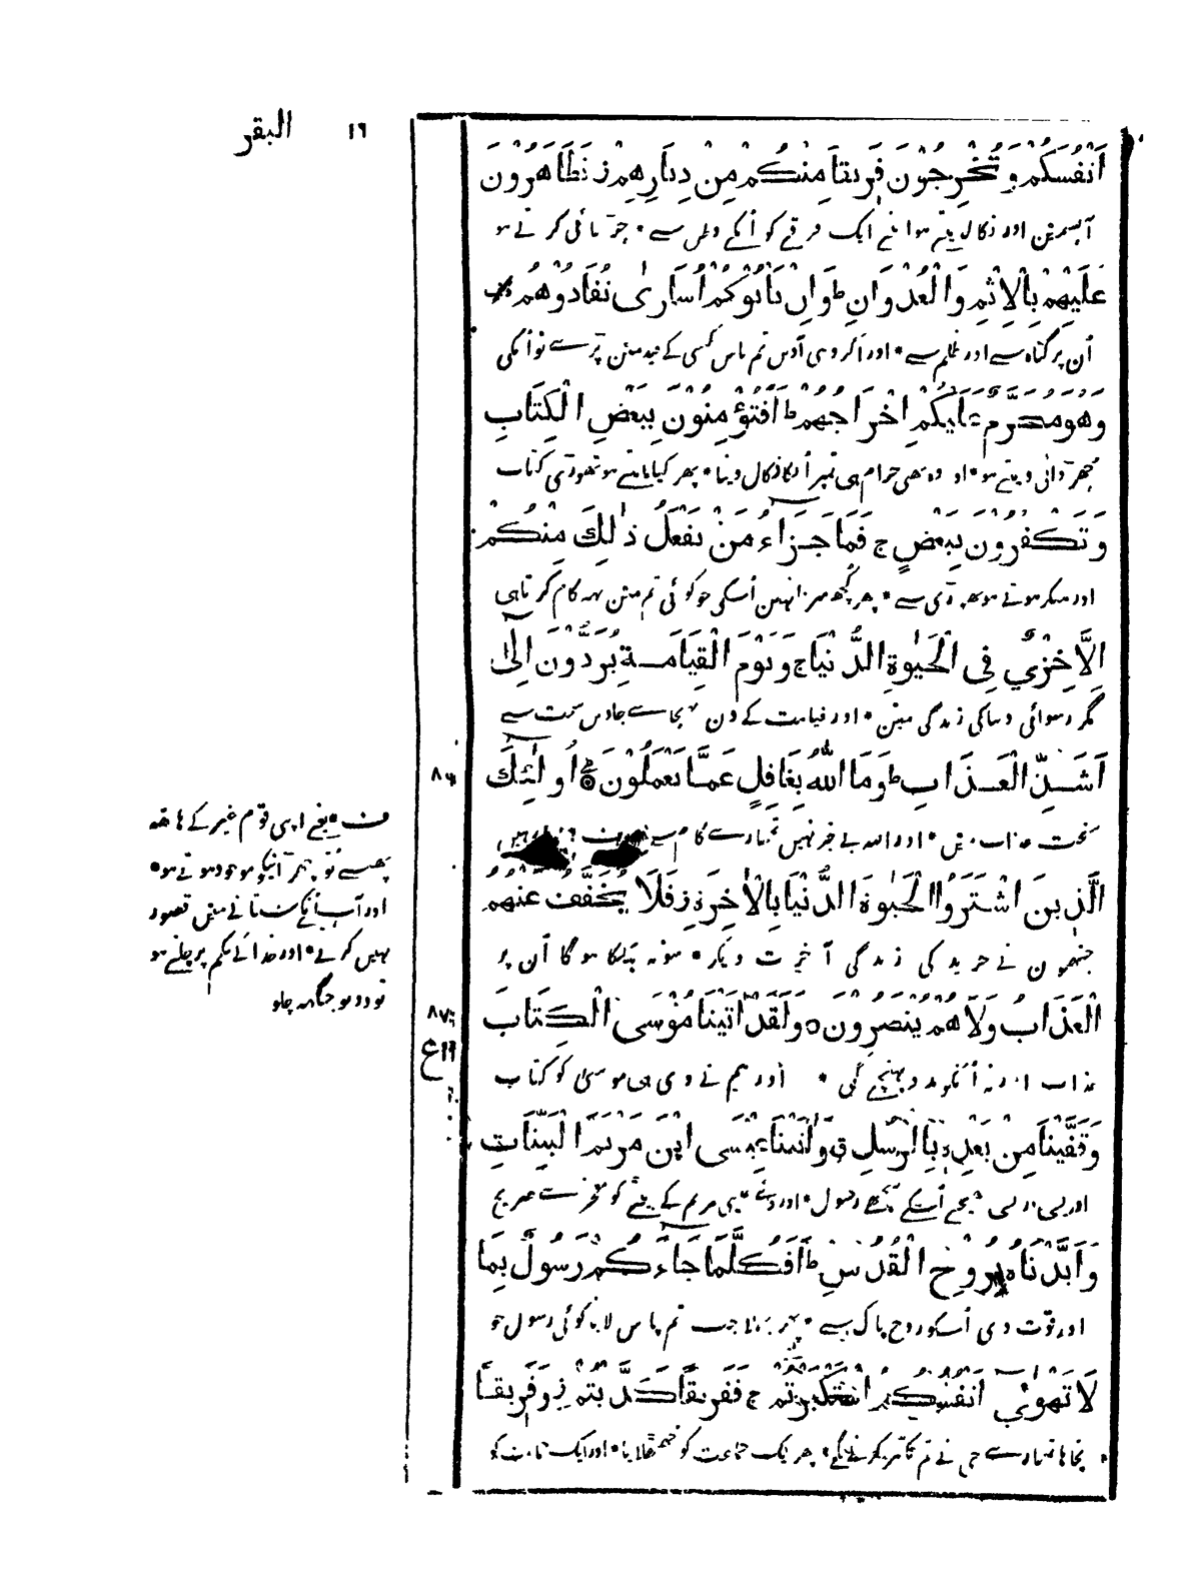 البقر ١٦
اَنْفُسَكُمْ وَتُخْرِجُوْنَ فَرِيْقًا مِنْكُمْ مِنْ دِيَارِهِمْ ز تَظَاهَرُوْنَ
آپسمین اور نکال دیتے ہو اپنے ایک فرقے کو اُنکے وطن سے * چڑھائی کرتے ہو
عَلَيْهِمْ بِالْاِثْمِ وَالْعُدْوَانِ ط وَاِنْ يَأْتُوْكُمْ اُسَارٰى تُفَادُوْهُمْ
اُن پر گناہ سے اور ظلم سے * اور اگر وہی آویں تم پاس کسی کے قید میں پڑے تو اُنکی
وَهُوَ مُحَرَّمٌ عَلَيْكُمْ اِخْرَاجُهُمْ ط اَفَتُؤْمِنُوْنَ بِبَعْضِ الْكِتَابِ
چھڑوائی دیتے ہو * اور وہ بھی حرام ہی تمپر اُنکا نکال دینا * پھر کیا مانتے ہو تھوڑی کتاب
وَتَكْفُرُوْنَ بِبَعْضٍ ج فَمَا جَزَاءُ مَنْ يَفْعَلُ ذٰلِكَ مِنْكُمْ
اور منکر ہوتے ہو تھوڑی سے * پھر کچھ سزا نہین اُسکی جو کوئی تم مین یہہ کام کرتا ہی
اِلَّا خِزْيٌ فِى الْحَيٰوةِ الدُّنْيَا ج وَيَوْمَ الْقِيَامَةِ يُرَدُّوْنَ اِلٰى
مگر رسوائی دنیا کی زندگی مین * اور قیامت کے دن پہنچائے جاویں سخت سے
اَشَدِّ الْعَذَابِ ط وَمَا اللّٰهُ بِغَافِلٍ عَمَّا تَعْمَلُوْنَ اُولٰئِكَ
٨٥
سخت عذاب میں * اور اللہ بے خبر نہیں تمہارے کام سے
الَّذِيْنَ اشْتَرَوُا الْحَيٰوةَ الدُّنْيَا بِالْاٰخِرَةِ ز فَلَا يُخَفَّفُ عَنْهُمُ
جنہوں نے خرید کی زندگی آخرت دیکر * سو نہ ہلکا ہوگا اُن پر
الْعَذَابُ وَلَا هُمْ يُنْصَرُوْنَ ٥ وَلَقَدْ اٰتَيْنَا مُوْسَى الْكِتَابَ
٨٦
ع
عذاب اور نہ اُنکو مدد پہنچے گی * اور ہم نے دی ہی موسیٰ کو کتاب
وَقَفَّيْنَا مِنْ بَعْدِهٖ بِالرُّسُلِ ز وَاٰتَيْنَا عِيْسَى ابْنَ مَرْيَمَ الْبَيِّنَاتِ
اور پی در پی بھیجے اُسکے پیچھے رسول * اور دئے عیسی مریم کے بیٹے کو معجزے صریح
وَاَيَّدْنَاهُ بِرُوْحِ الْقُدُسِ ط اَفَكُلَّمَا جَاءَكُمْ رَسُوْلٌ بِمَا
اور قوت دی اُسکو روح پاک سے * پھر بھلا جب تم پاس لایا کوئی رسول جو
لَا تَهْوٰى اَنْفُسُكُمُ اسْتَكْبَرْتُمْ ج فَفَرِيْقًا كَذَّبْتُمْ ز وَفَرِيْقًا
نچاہا تمہارے جی نے تم تکبر کرنے لگے * پھر ایک جماعت کو جھٹلایا * اور ایک جماعت کو
ف * یعنے اپنی قوم غیر کے ہاتھہ
پھنسے تو چھڑانیکو موجود ہوتے ہو *
اور آپ اُنکے ستانے مین قصور
نہیں کرتے * اور خدا کے حکم پر چلتے ہو
تو دونو جگہہ چلو